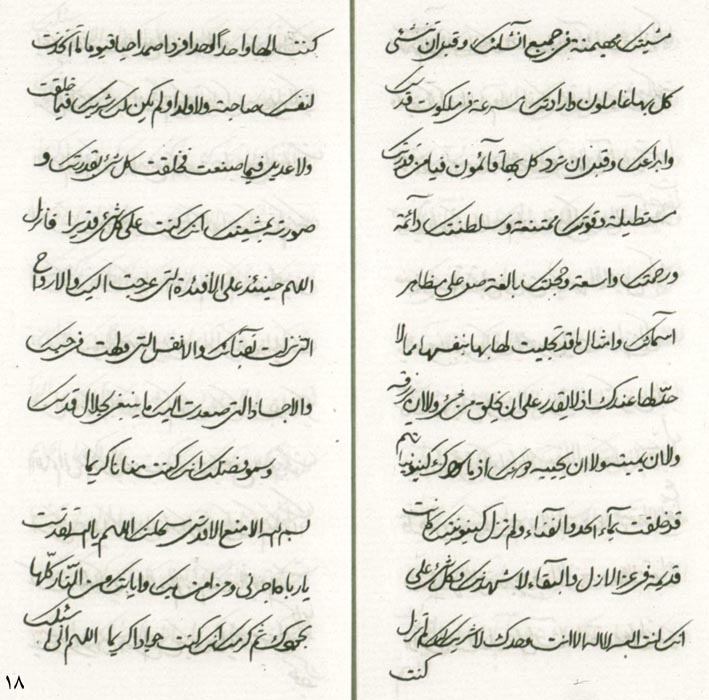 مشیتک مهیمنة فی جمیع انشائک و قبل ان تنشئی
کل بها عاملون و ارادتک سرعة فی ملکوت قدرتک
و ابداعک و قبل ان ترد کل بها قائمون فیا من قدرتک
مستطیلة و قوتک ممتنعة و سلطنتک دائمة
و رحمتک واسعة و حجتک بالغة صل علی مظاهر
اسمائک و امثال قد تجلیت لها بها بنفسها مما لا
عندک اذ لا یقدر علی ان یخلق من شیء و لا ان یرزقه
و لا ان یمیته و لا ان یحییه
قد خلقت بماء الحد و الفناء و لم تزل کینونیتک کانت
قدیمة فی عز الازل و البقاء لاشهدنک و کل شیء علی
انک انت الله لا اله الا انت وحدک لا شریک لک لم تزل
کنت
کنت الها واحدا احدا فردا صمدا حیا قیوما ما اتخذت
لنفسک صاحبة و لا ولدا و لم یکن لک شریک فیما خلقت
و لا عدیل فیما صنعت خلقت کل شیء بقدرتک و
صورته بمشیتک انک کنت علی کل شیء قدیرا فانزل
اللهم حینئذ علی الافئدة التی عرجت الیک و الارواح
التی نزلت بفنائک و الانفس التی دخلت فی حبک
و الاجساد التی صعدت الیک ما ینبغی لجلال قدسک
و سمو فضلک انک کنت منانا کریما
بسم الله الامنع الاقدس سبحانک اللهم یا الهی
یا رباه اجرنی و من امن بک و ایاتک من النار کلها
بجودک ثم کرمک انک کنت جوادا کریما اللهم انی اسئلک
١٨